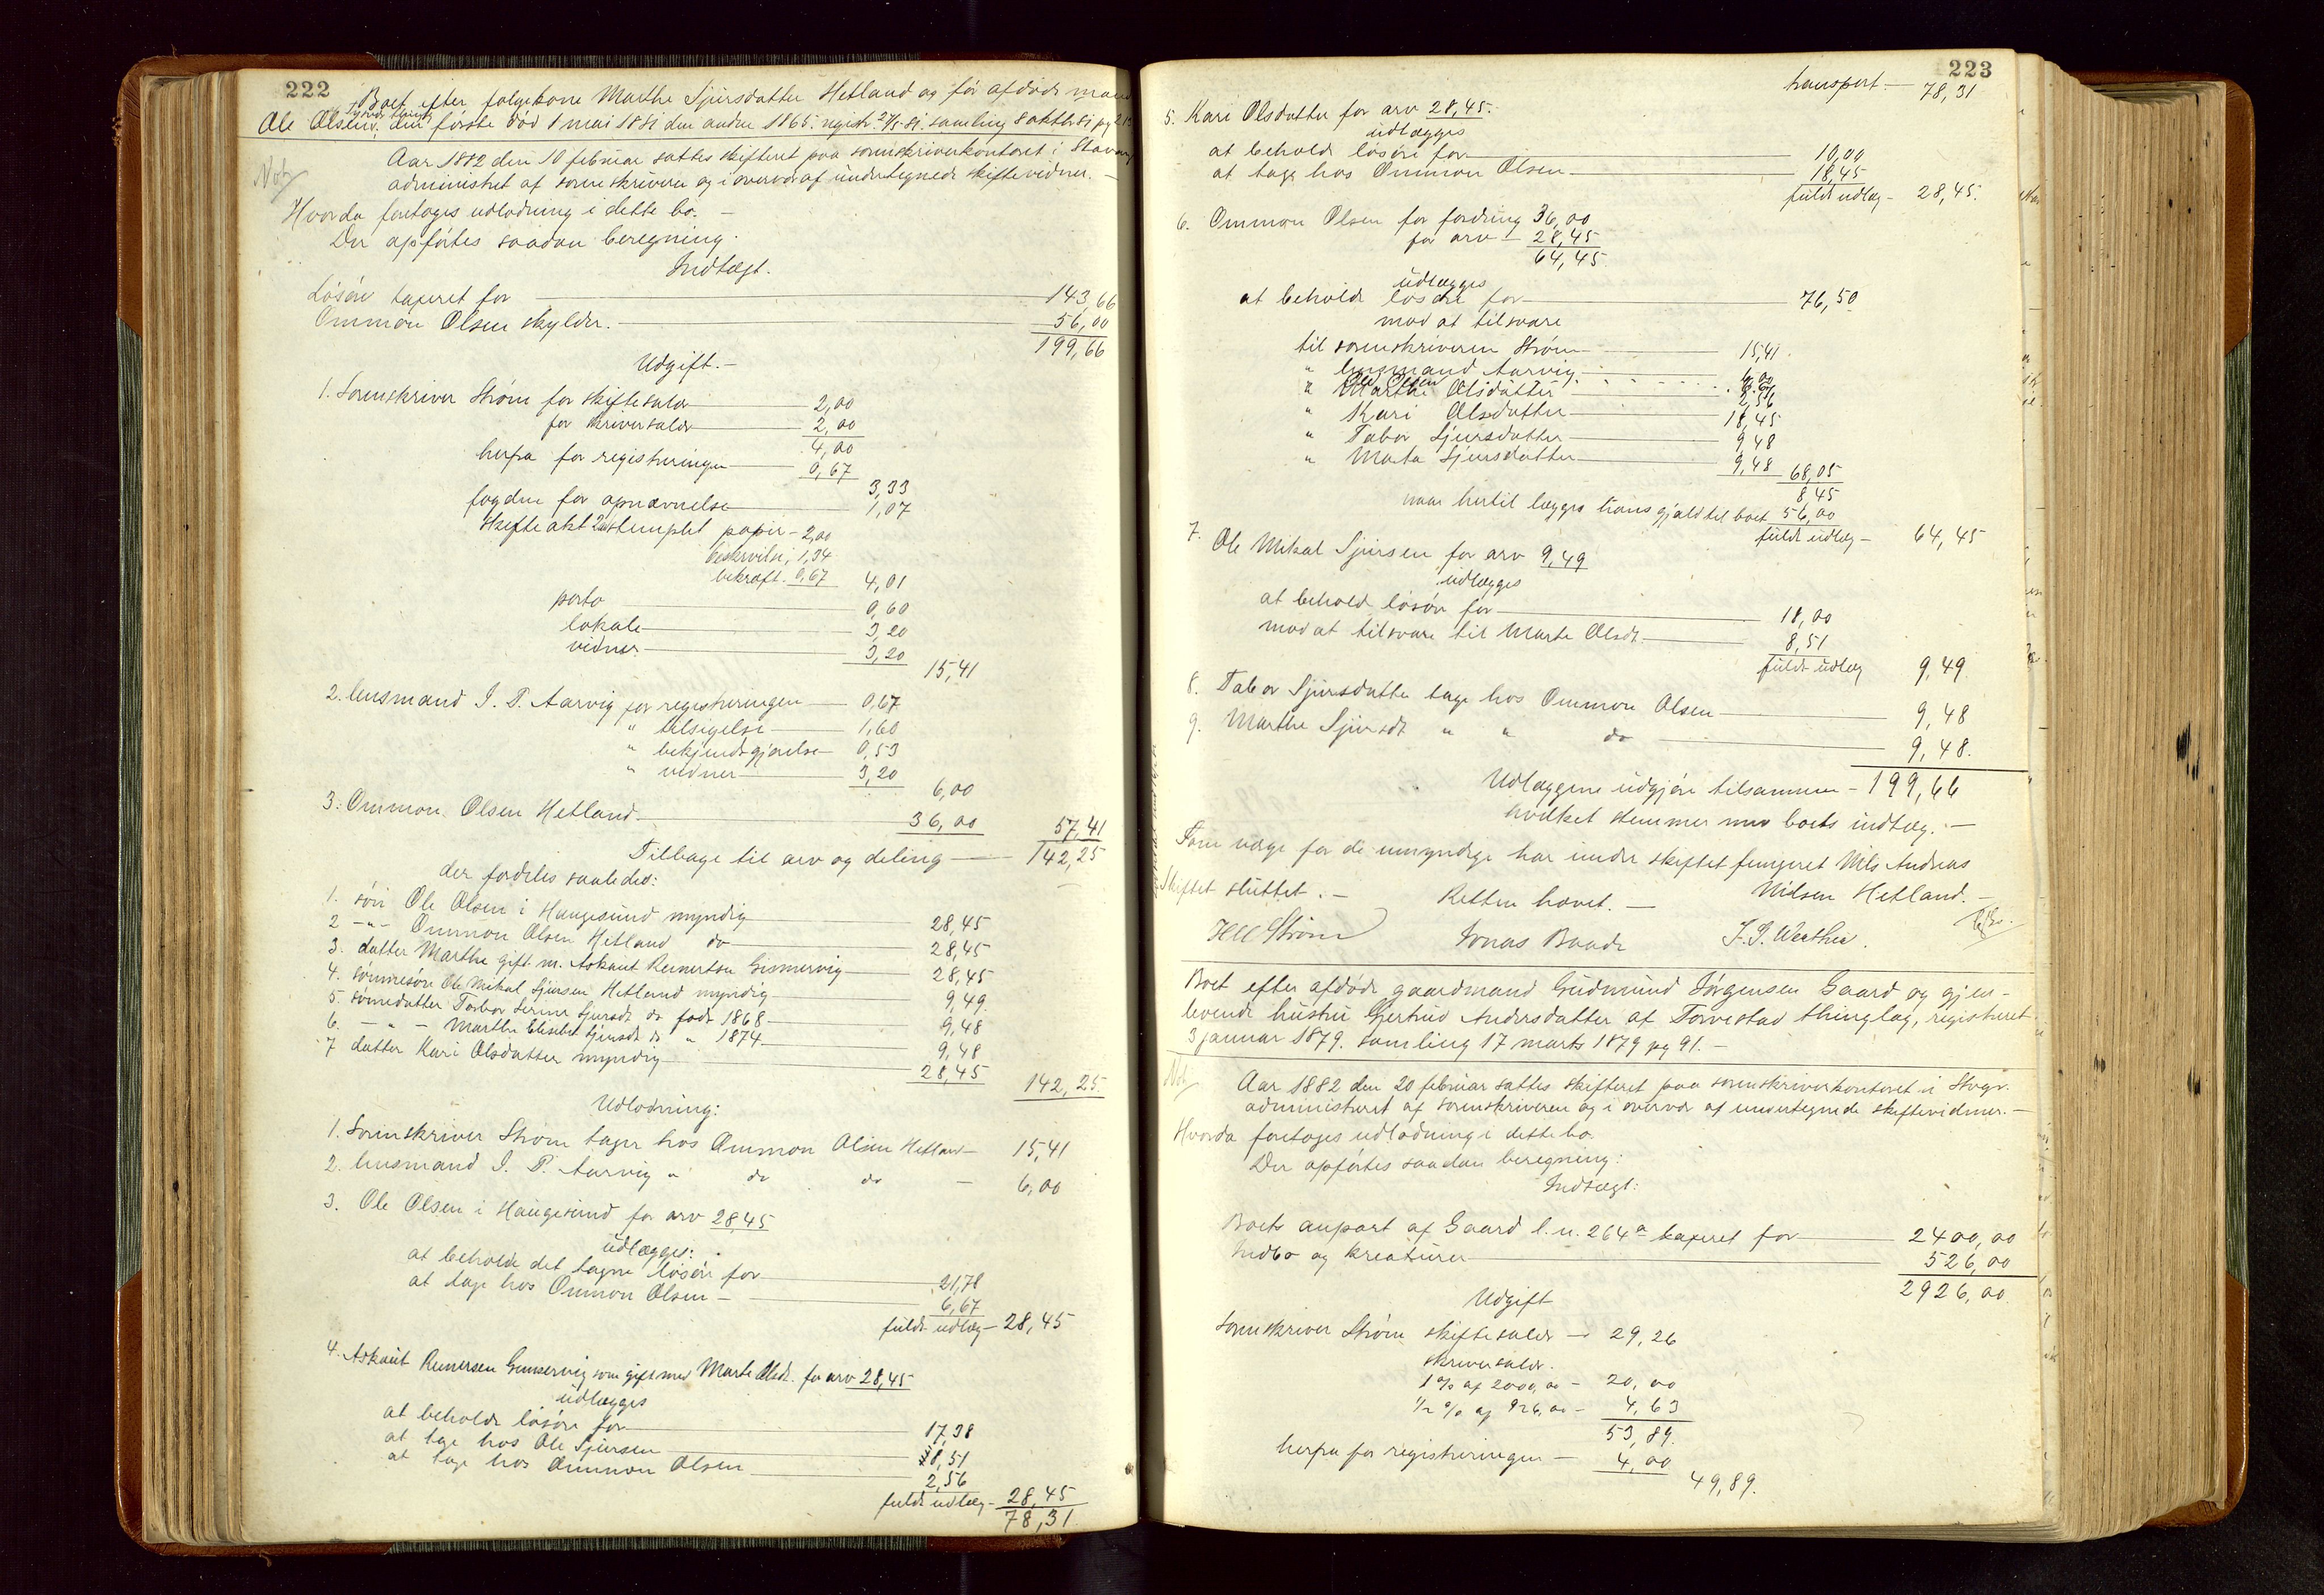 222
Boet efter folgekone Marthe Sjursdatter Hetland og før afdøde mand
Ole Olsen, den første død 1 mai 1881 den anden 1865. registr. 27/5 81. samling 8 oktbr 81 pg 21
Not
Aar 1882 den 10 februar sattes skifteret paa sorenskriverkontoret i Stavang
administret af sorenskriveren og i overvær af undertegnede skiftevidner. —
Hvorda foretoges udlodning i dette bo. —
Der opførtes saadan beregning:
Indtægt.
Løsøre taxeret for — 143,66
Ommon Olsen skylder. — 56,00
199,66
Udgift. —
1. Sorenskriver Strøm for skiftesalær — 2,00
for skriversalær — 2,00
4,00
herfra for registreringen — 0,67
3,33
fogden for opnævnelse — 1,07
skifteakt 2 ark stemplet papir — 2,00
beskrivelse, 1,34
bekræft. 0,67 4,01
porto — 0,60
lokale — 3,20
vidner — 3,20 15,41
2. lensmand I. P. Aarvig for registreringen — 0,67
" tilsigelse — 1,60
" bekjendtgjørelse — 0,53
" vidner — 3,20
6,00
3. Ommon Olsen Hetland. — 36,00 57,41
Tilbage til arv og deling — 142,25
der fordeles saaledes:
1. søn Ole Olsen i Haugesund myndig — 28,45
2 — " — Ommon Olsen Hetland do — 28,45
3. datter Marthe gift m. Askaut Reinertsen Gismervig — 28,45
4. sønnesøn Ole Mikal Sjursen Hetland myndig — 9,49
5. sønnedatter Tabor Serine Sjursdt do født 1868 — 9,48
6. — " — Marthe Elisebet Sjursdt do " 1874 — 9,48
7 datter Kari Olsdatter myndig — 28,45
142,25
Udlodning:
1. Sorenskriver Strøm tager hos Ommon Olsen Hetland — 15,41
2. lensmand I. P. Aarvig " do do — 6,00
3. Ole Olsen i Haugesund for arv 28,45
udlægges:
at beholde det tagne løsøre for — 21,78
at tage hos Ommon Olsen — 6,67
fuldt udlæg — 28,45
4. Askaut Reinersen Gismervig som gift med Marte Olsdt. for arv 28,45
udlægges
at beholde løsøre for — 17,38
at tage hos Ole Sjursen — 8,51
at tage hos Ommon Olsen — 2,56
fuldt udlæg — 28,45
78,31
223
transport — 78,31
5. Kari Olsdatter for arv 28,45.
udlægges
at beholde løsøre for — 10,00
at tage hos Ommon Olsen — 18,45
fuldt udlæg — 28,45.
6. Ommon Olsen for fordring 36,00
for arv — 28,45
64,45
udlægges
at beholde løsøre for — 76,50
mod at tilsvare
til sorenskriveren Strøm — 15,41
" lensmand Aarvig. — 6,00
" Ole Olsen 6.67
" Marthe Olsdatter — 2,56
" Kari Olsdatter — 18,45
" Tabor Sjursdatter — 9,48
" Marta Sjursdatter — 9,48 68,05
8,45
naar hertil lægges hans gjæld til boet 56,00
fuldt udlæg — 64,45
7. Ole Mikal Sjursen for arv 9,49
udlægges
at beholde løsøre for — 18,00
mod at tilsvare til Marte Olsdt. — 8,51
fuldt udlæg 9,49
8. Tabor Sjursdatter tage hos Ommon Olsen — 9,48
9. Marthe Sjursdt " " do — 9,48.
Udlæggene udgjøre tilsammen — 199,66
hvilket stemmer med boets indtæg. —
Som værge for de umyndige har under skiftet fungeret Nils Andreas
Nilsen Hetland. —
Skiftet sluttet. — Retten hævet. —
Strøm Jonas Baade
Boet efter afdøde gaardmand Gudmund Jörgensen Gaard og gjen-
levende hustru Gjertrud Andersdatter af Torvestad thinglag, registreret
3 januar 1879. samling 17 marts 1879 pg 91. —
Not
Aar 1882 den 20 februar sattes skifteret paa sorenskriverkontoret i Stvgr.
administreret af sorenskriveren og i overvær af undertegnede skiftevidner. —
Hvorda foretoges udlodning i dette bo.
Der opførtes saadan beregning:
Indtægt:
Boets anpart af Gaard l.n. 264a taxeret for — 2400,00
Indbo og kreaturer — 526,00
2926,00
Udgift
Sorenskriver Strøm skiftesalær — 29,26
skriversalær.
1 % af 2000,00 — 20,00
1/2 % af 926,00 — 4,63
53,89.
herfra for registreringen — 4,00
49,89.